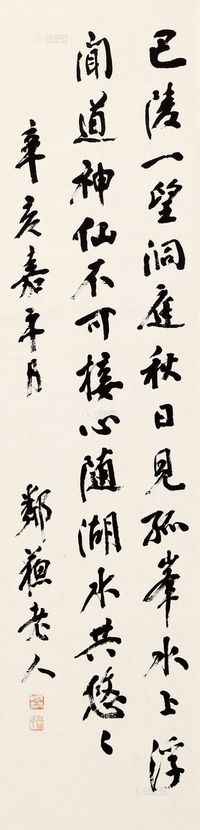 巴陵一望洞庭秋日見孤峯水上浮
聞道神仙不可接心随湖水共悠〻
辛亥嘉平月
鄰蘓老人